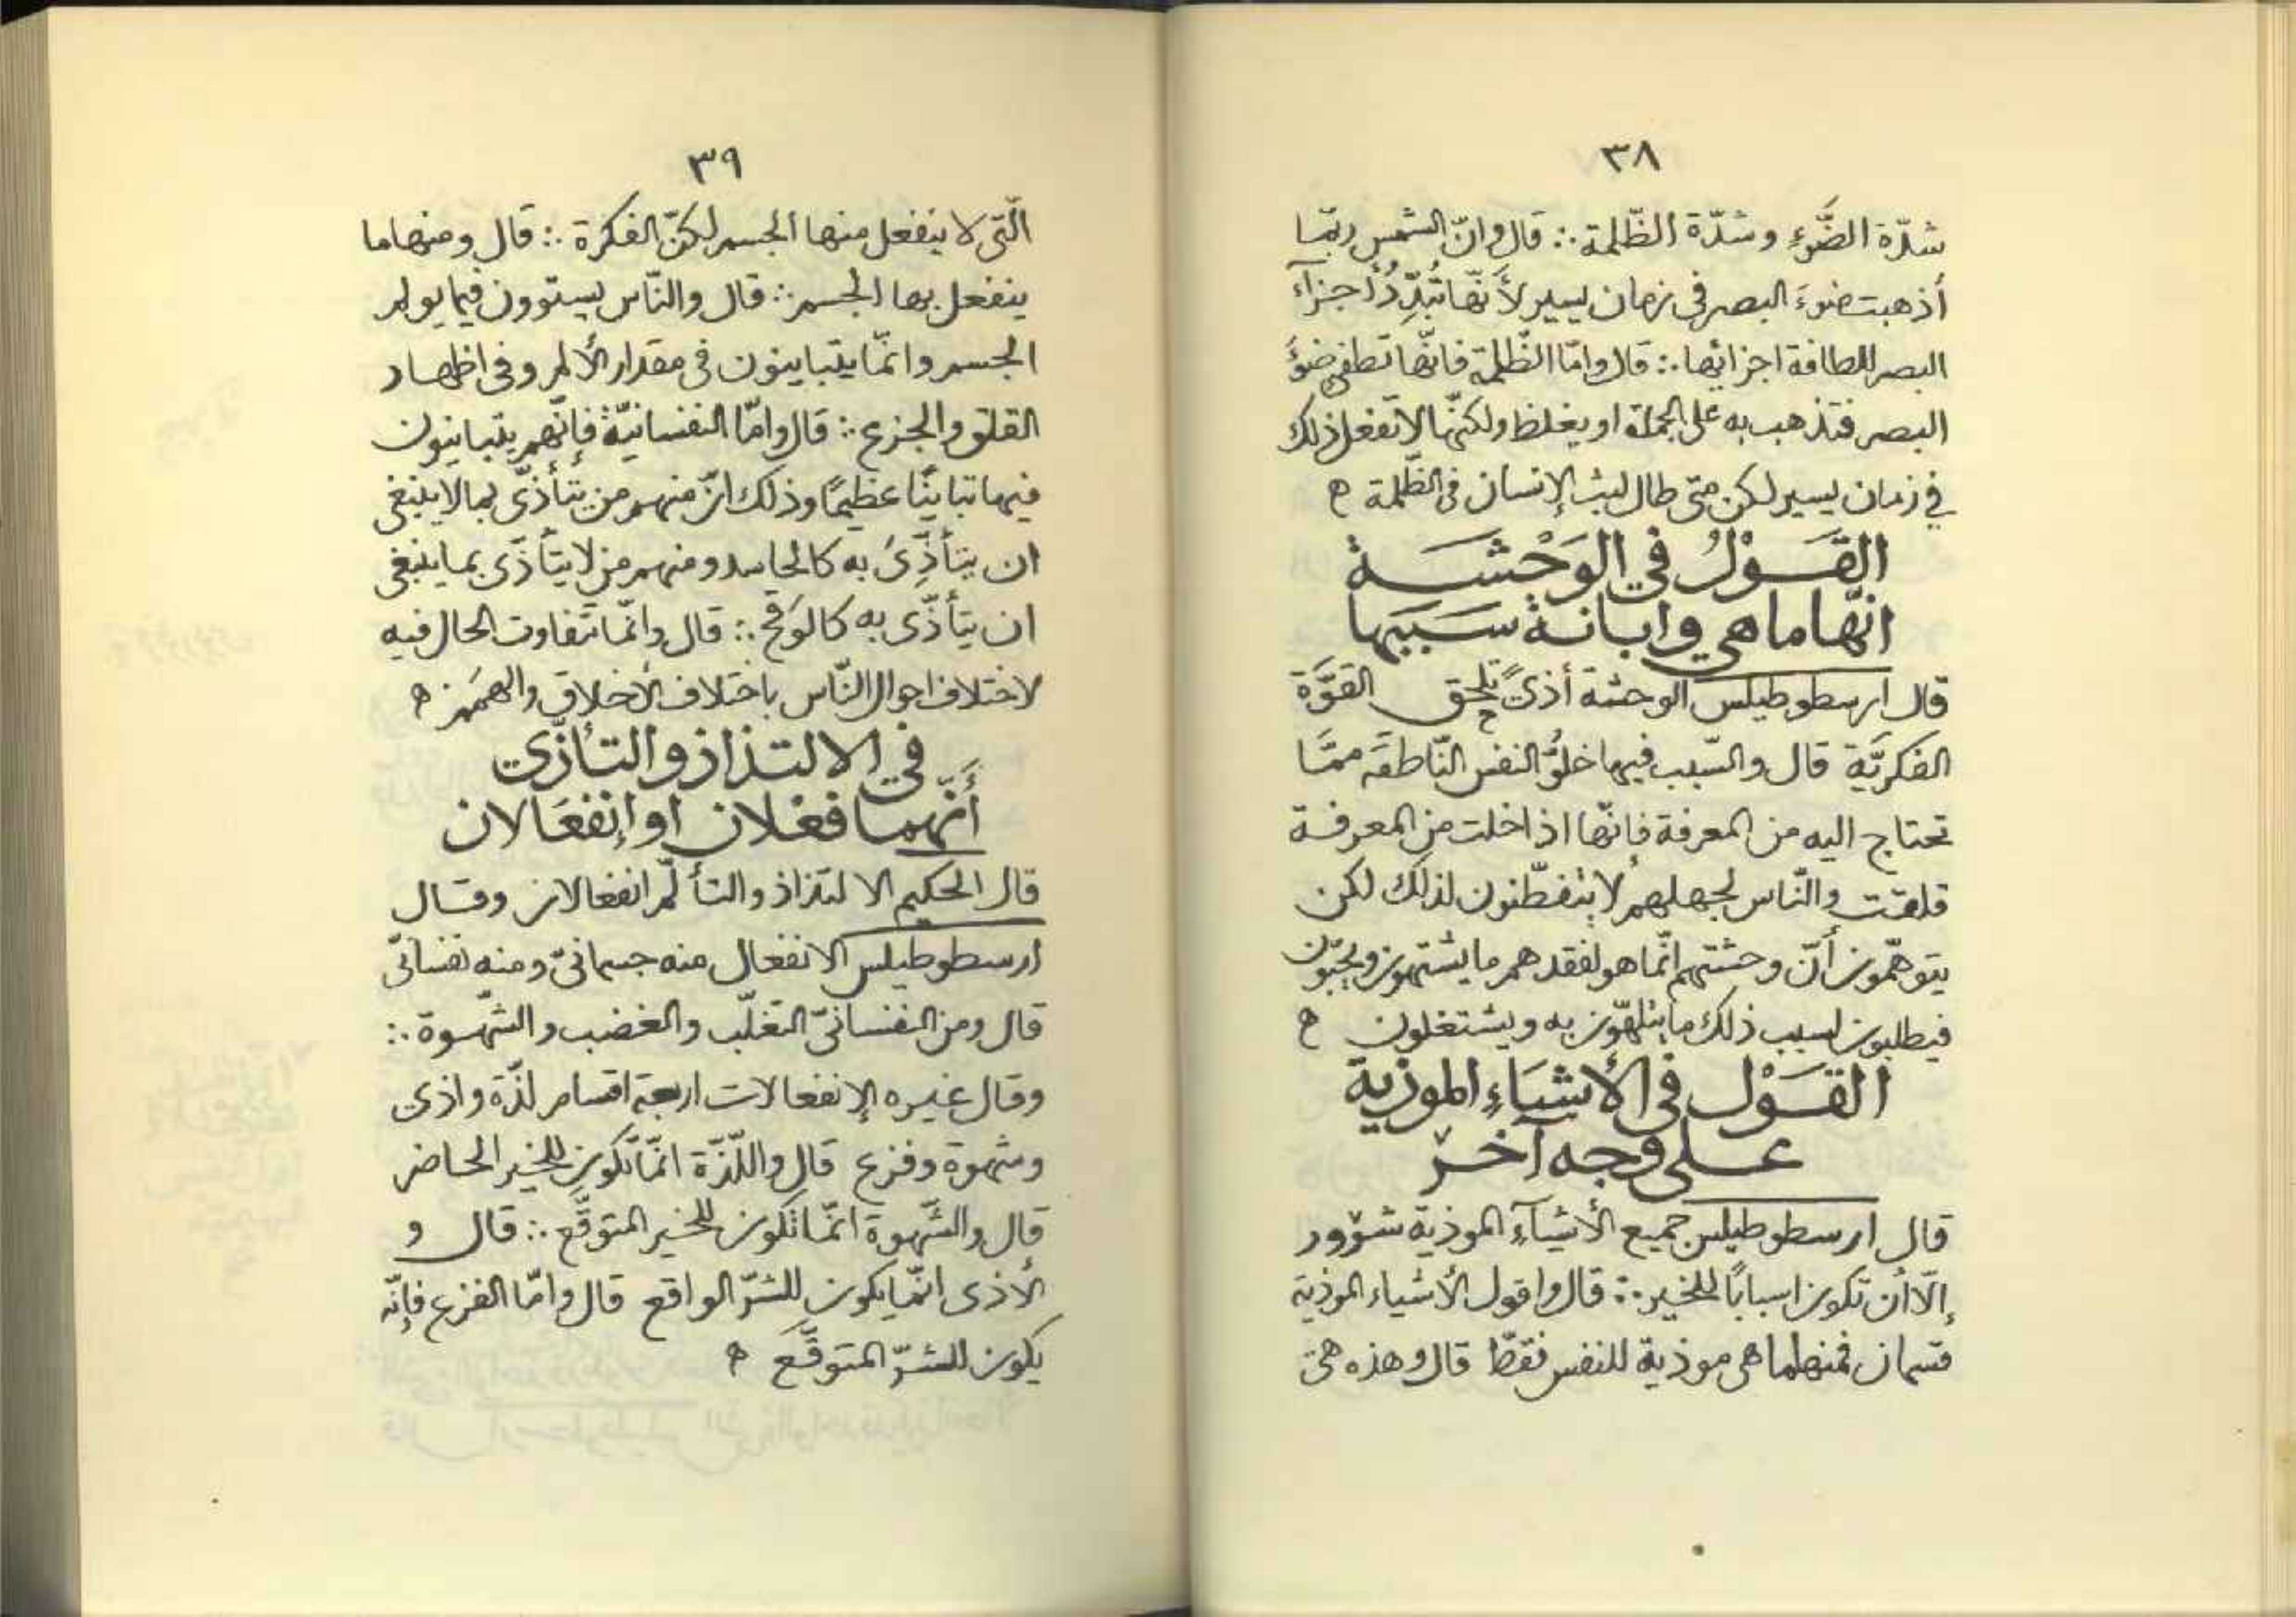 ٣٨
شدّة الضَّوءِ وشدّة الظّلمة ∴ قال وانّ الشمس ربّما
أذهبت ضوءَ البصر في زمان يسير لأَنّها تُبدِّدُ أجزآء
البصر للطافة اجزائها ∴ قال وامّا الظّلمة فانّها تطفئ ضوءَ
البصر فتذهب به على الجملة او يغلظ ولكنّها لا تفعل ذلك
في زمان يسير لكن متى طال لبث الإنسان في الظّلمة ه
القَوْلُ في الوَحْشَة
انّها ما هي وابانة سَبَبها
قال ارسطوطيلس الوحشة أذىً تلحق القوَّة
الفكريَّة قال والسّبب فيها خلوُّ النفس النّاطقة ممّا
تحتاج اليه من المعرفة فانّها اذا خلت من المعرفة
قلقت والنّاس لجهلهم لا يتفطّنون لذلك لكن
يتوهّمون أنّ وحشتهم انّما هو لفقدهم ما يشتهون ويحبّون
فيطلبون لسبب ذلك ما يتلهّون به ويشتغلون ه
القَوْل في الأشيَاءِ الموذية
على وجه آخر
قال ارسطوطيلس جميع الأشيآءِ الموذية شرور
إلّا أن تكون اسبابًا للخير ∴ قال واقول الأشياء الموذية
قسمان فمنها ما هي موذية للنفس فقطّ قال وهذه هي
٣٩
الّتي لا ينفعل منها الجسم لكنّ الفكرة ∴ قال ومنها ما
ينفعل بها الجسم ∴ قال والنّاس يستوون فيما يولم
الجسم وانّما يتباينون في مقدار الألم وفي اظهار
القلق والجزع ∴ قال وامّا النفسانيّة فإنّهم يتباينون
فيها تباينًا عظيمًا وذلك انّ منهم من يتأذّى بما لا ينبغي
ان يتأذّى به كالحاسد ومنهم من لا يتأذّى بما ينبغي
ان يتأذّى به كالوَقِح ∴ قال وانّما تَفاوت الحال فيه
لاختلاف احوال النّاس باختلاف الأخلاق والهمَم ه
في الالتذاذ والتأذّي
أَنّهما فعْلان او إنفعَالان
قال الحكيم الالتذاذ والتألّم انفعالان وقال
ارسطوطيلس الانفعال منه جسمانيّ ومنه نفسانيّ
قال ومن النفسانيّ التغلّب والغضب والشّهوة ∴
وقال غيره الإنفعالات اربعة اقسام لذّة واذى
وشهوة وفزع قال واللّذّة انّما تكون للخير الحاضر
قال والشّهوة انّما تكون للخير المتوقَّع ∴ قال و
الأذى انّما يكون للشرّ الواقع قال وامّا الفزع فإنّه
يكون للشرّ المتوقَّع ه